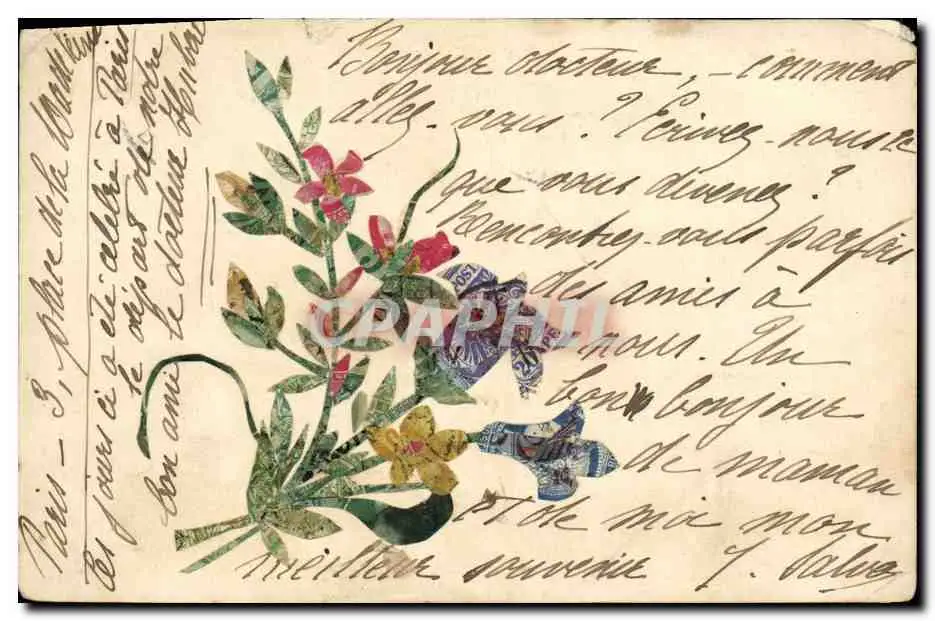 Bonjour docteur, – comment
allez-vous ? Écrivez-nous ce
que vous devenez ?
Rencontrez-vous parfois
des amis à
nous. Un
bon bonjour
de maman
et de moi mon
meilleur souvenir J.
Paris – 3, place de la Madeleine
Ces jours ci a été célébré à Paris
le départ de notre
bon amie le docteur
CPAPHIL